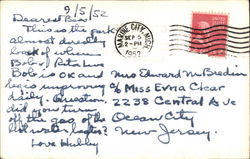 9/5/52
Dearest Bea,
This is the park
almost directly
back of where
Bob & Rita live
Bob is OK and
keeps improving
daily. Question,
did you turn
off the gas of the
hot water heater?
Love Hubby
MARINE CITY, MICH.
SEP 5
2 - PM
1952
Mrs Edward M. Bredin
c/o Miss Erma Clear
2238 Central Ave
Ocean City
New Jersey.